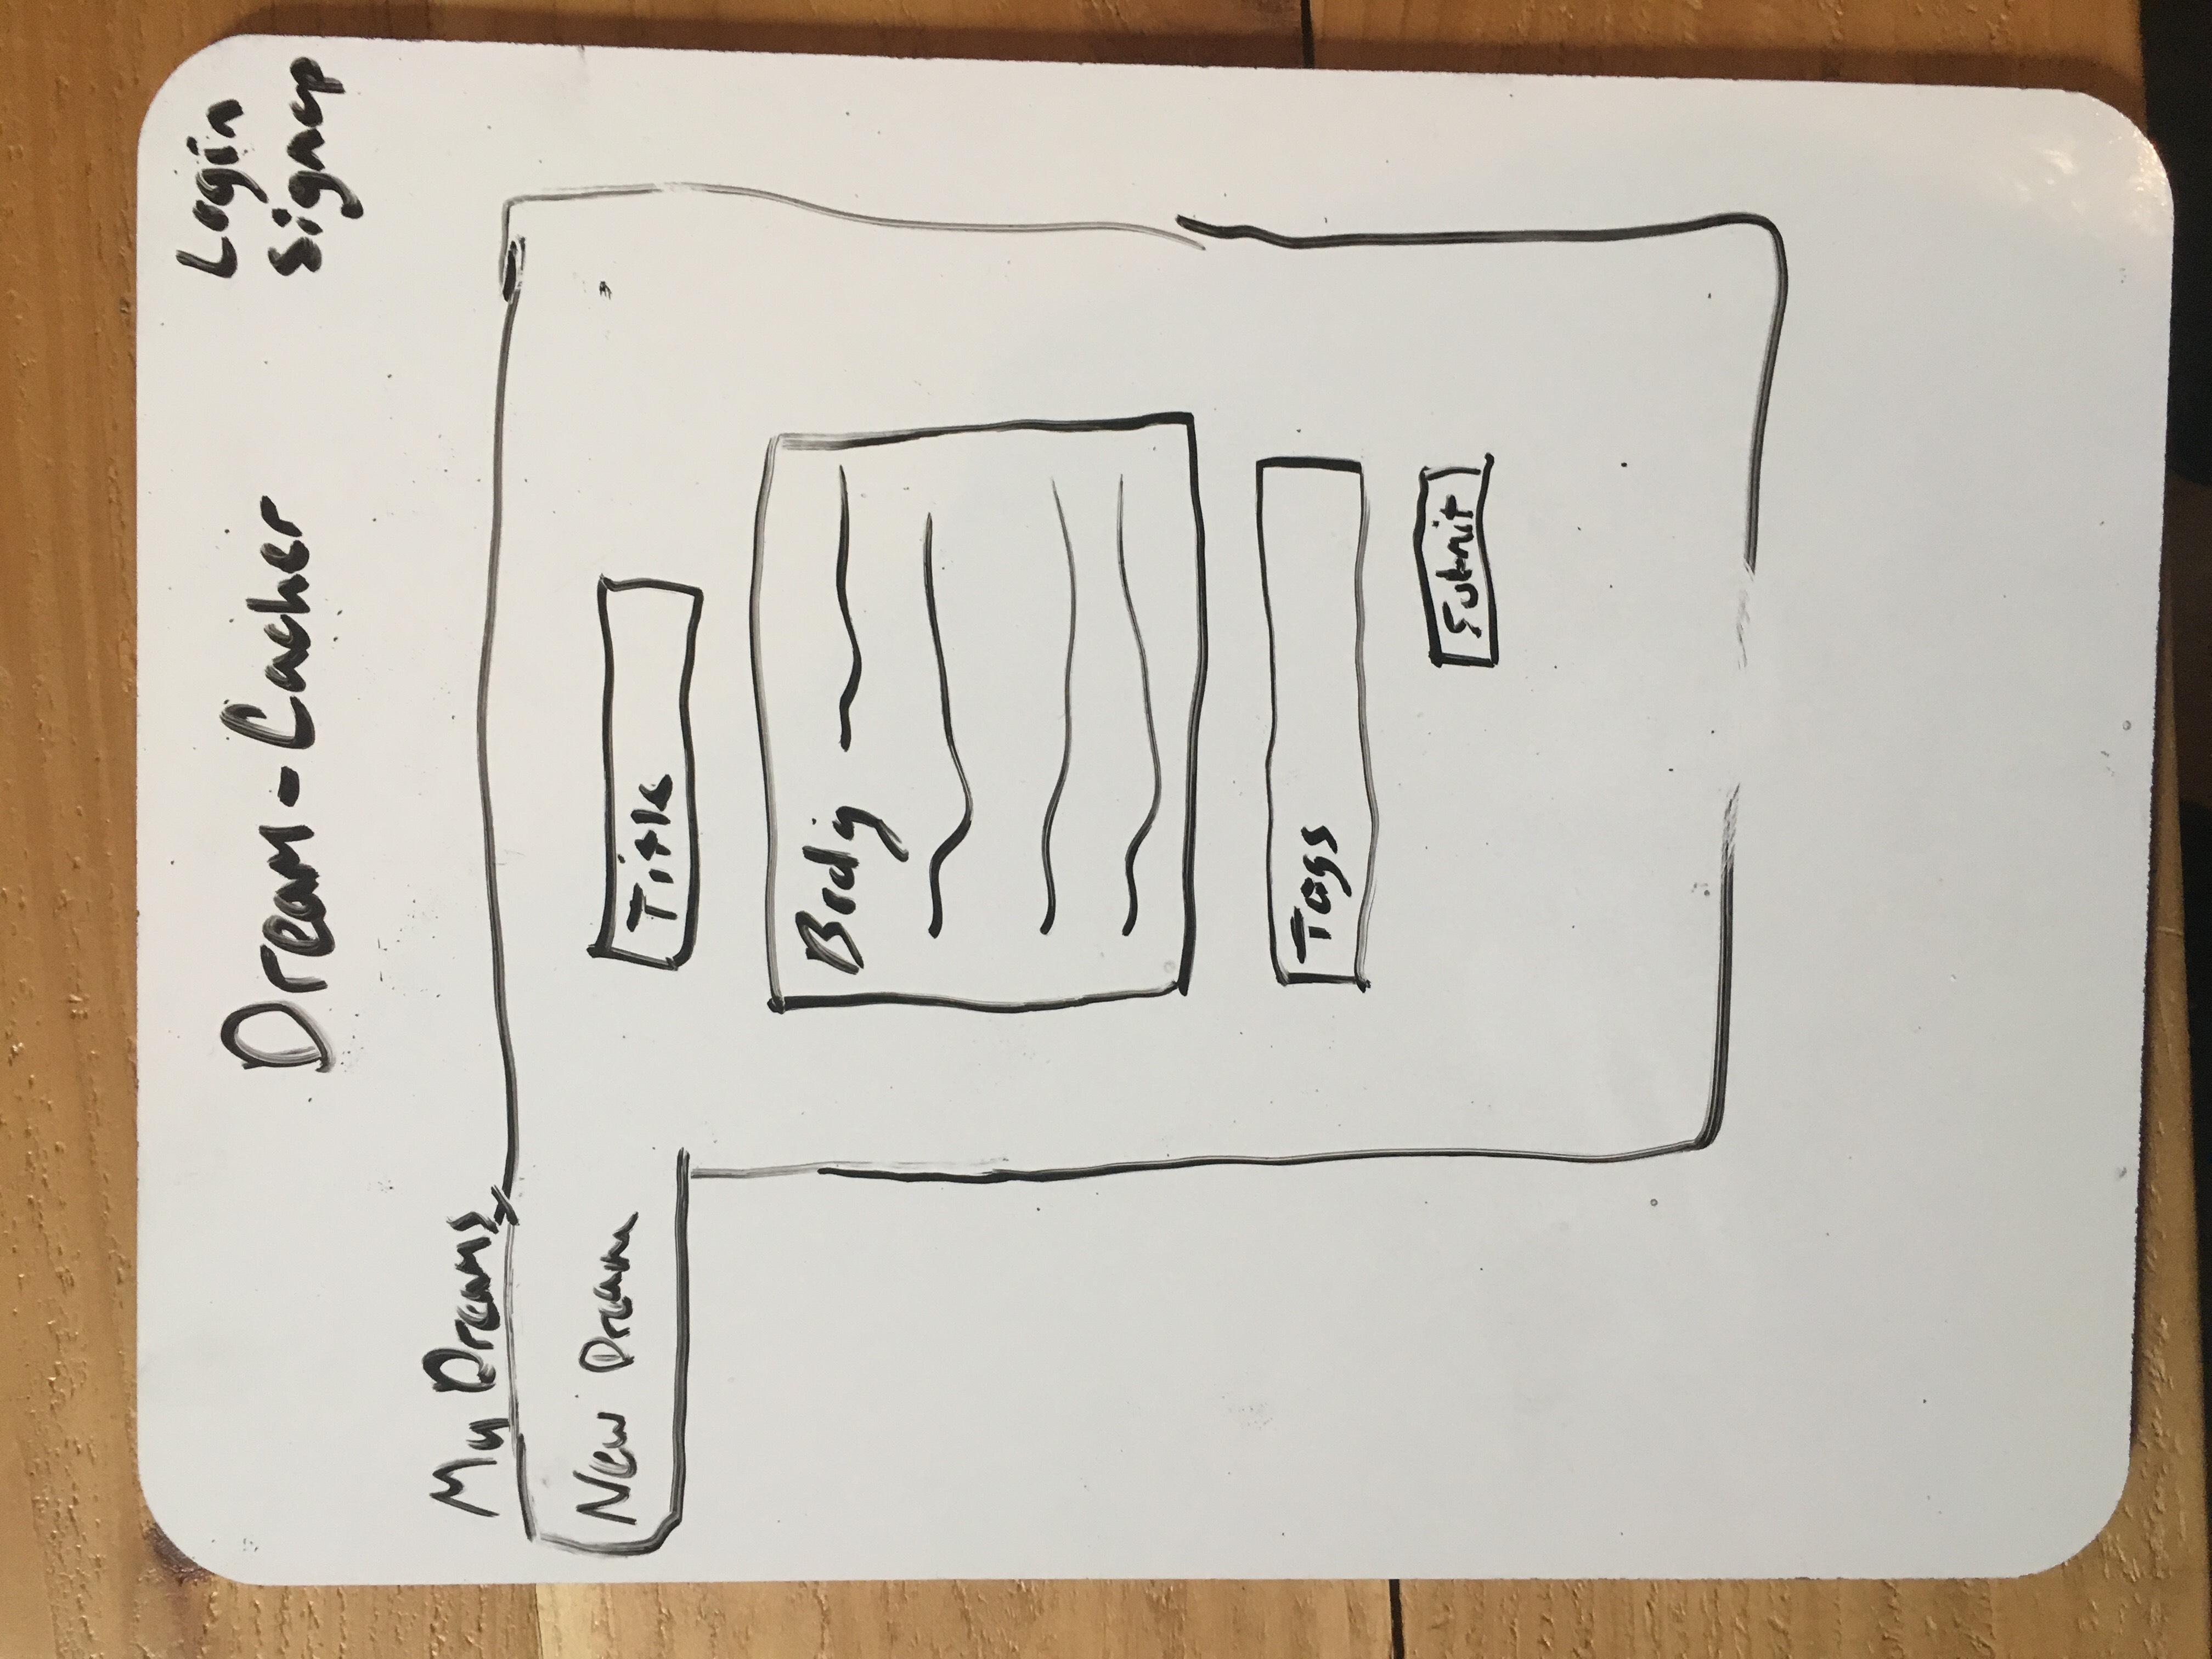 Dream-Cacher
Login
Signup
My Dreams
New Dream
Title
Body
Tags
Submit